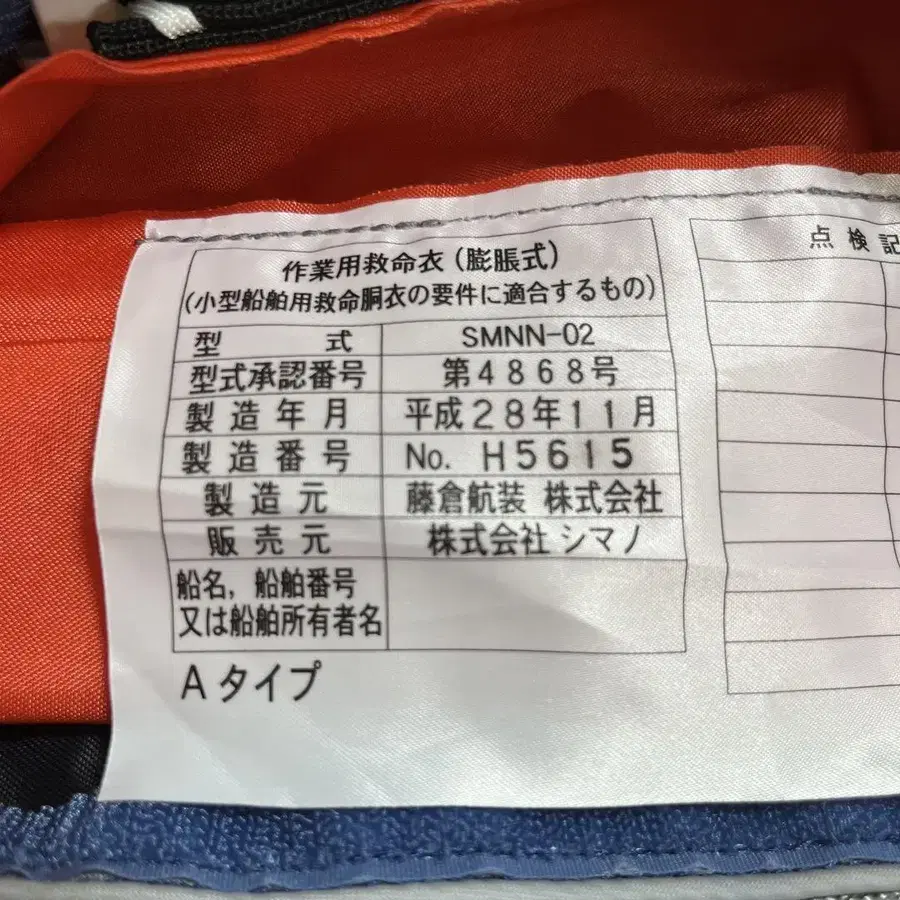 作業用救命衣(膨脹式)
(小型船舶用救命胴衣の要件に適合するもの)
型 式 SMNN-02
型式承認番号 第4868号
製造年月 平成28年11月
製造番号 No. H5615
製造元 藤倉航装 株式会社
販売元 株式会社 シマノ
船名, 船舶番号
又は船舶所有者名
Aタイプ
点検記